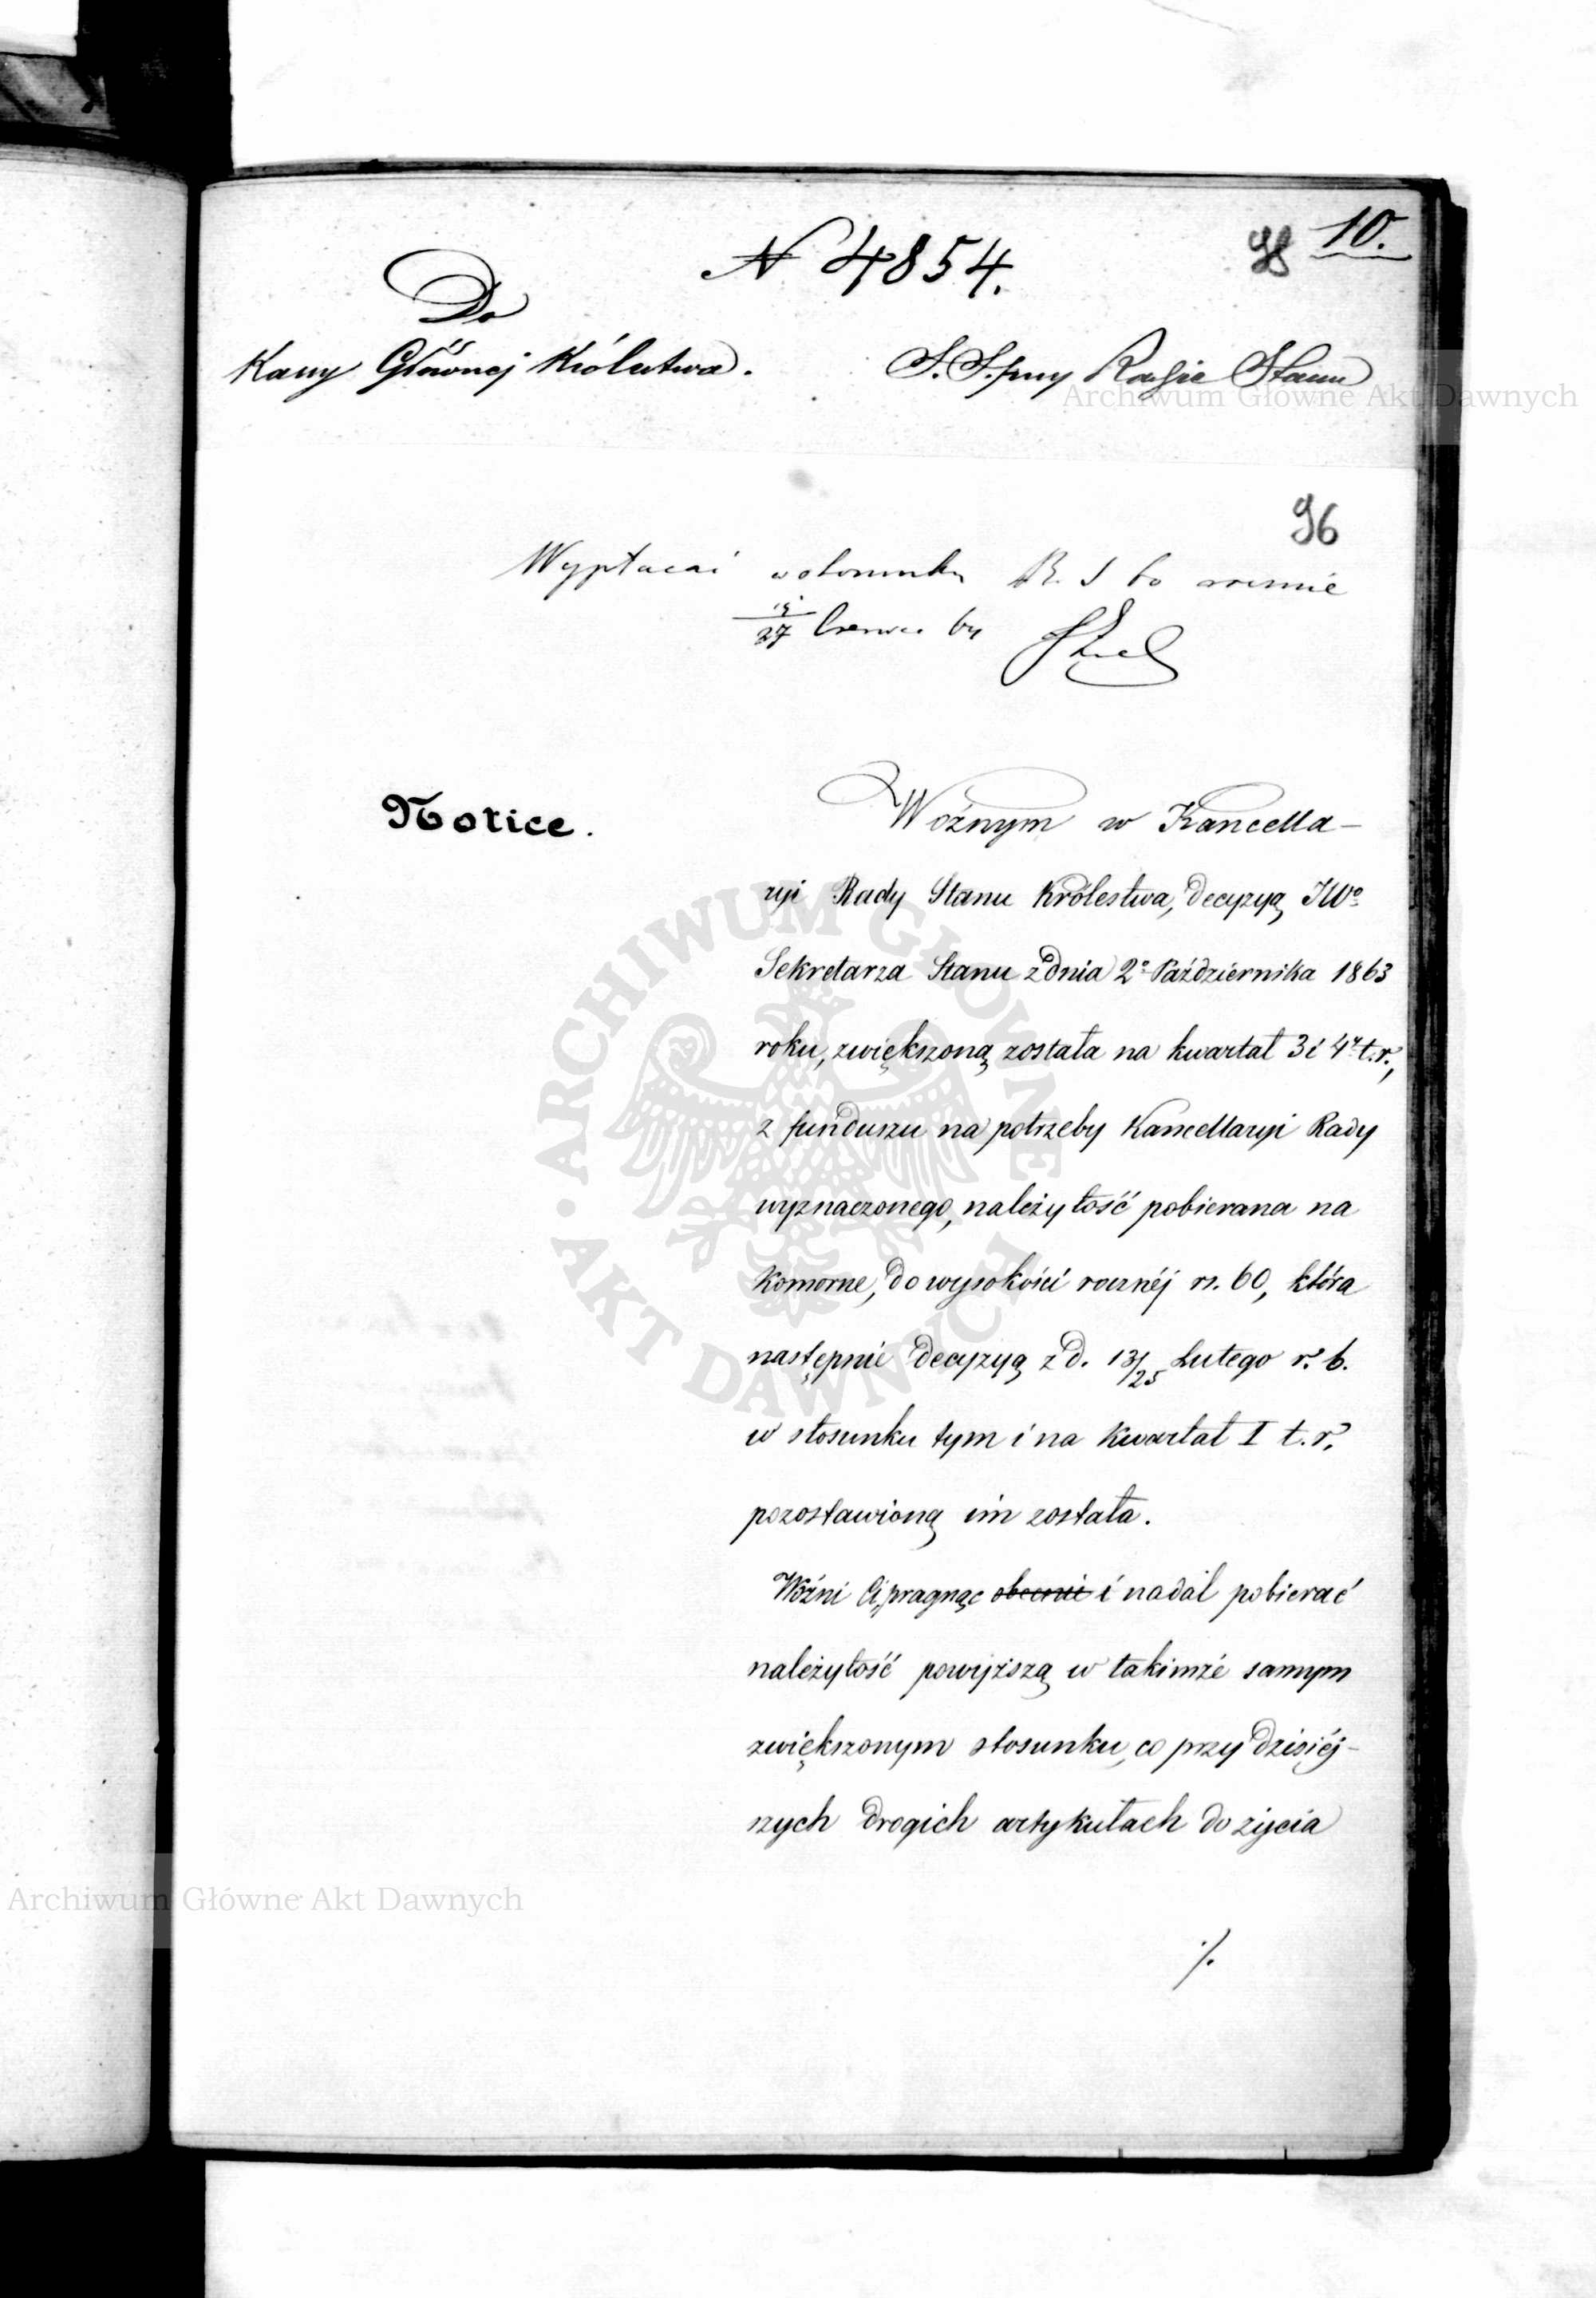 10.
98
N 4854.
Do
Kassy Głównej Królestwa.
S. S. przy Radzie Stanu
96
Wypłacać w stosunku R. S 60 rocznie
15/27 Czerwca 64
Notice.
Woźnym w Kancella-
ryi Rady Stanu Królestwa, decyzyą JWo
Sekretarza Stanu z dnia 2o Października 1863
roku, zwiększoną została na kwartał 3 i 4y t. r.,
z funduszu na potrzeby Kancellaryi Rady
wyznaczonego, należytość pobierana na
Komorne, do wysokości rocznéj rs. 60, która
następnie decyzyą z d. 13/25 Lutego r. b.
w stosunku tym i na Kwartał I t. r.
pozostawioną im została.
Woźni Ci, pragnąc obecnie i nadal pobierać
należytość powyższą w takimże samym
zwiększonym stosunku, co przy dzisiéj-
szych drogich artykułach do życia
./.
Archiwum Główne Akt Dawnych
ARCHIWUM GŁÓWNE AKT DAWNYCH
Archiwum Główne Akt Dawnych